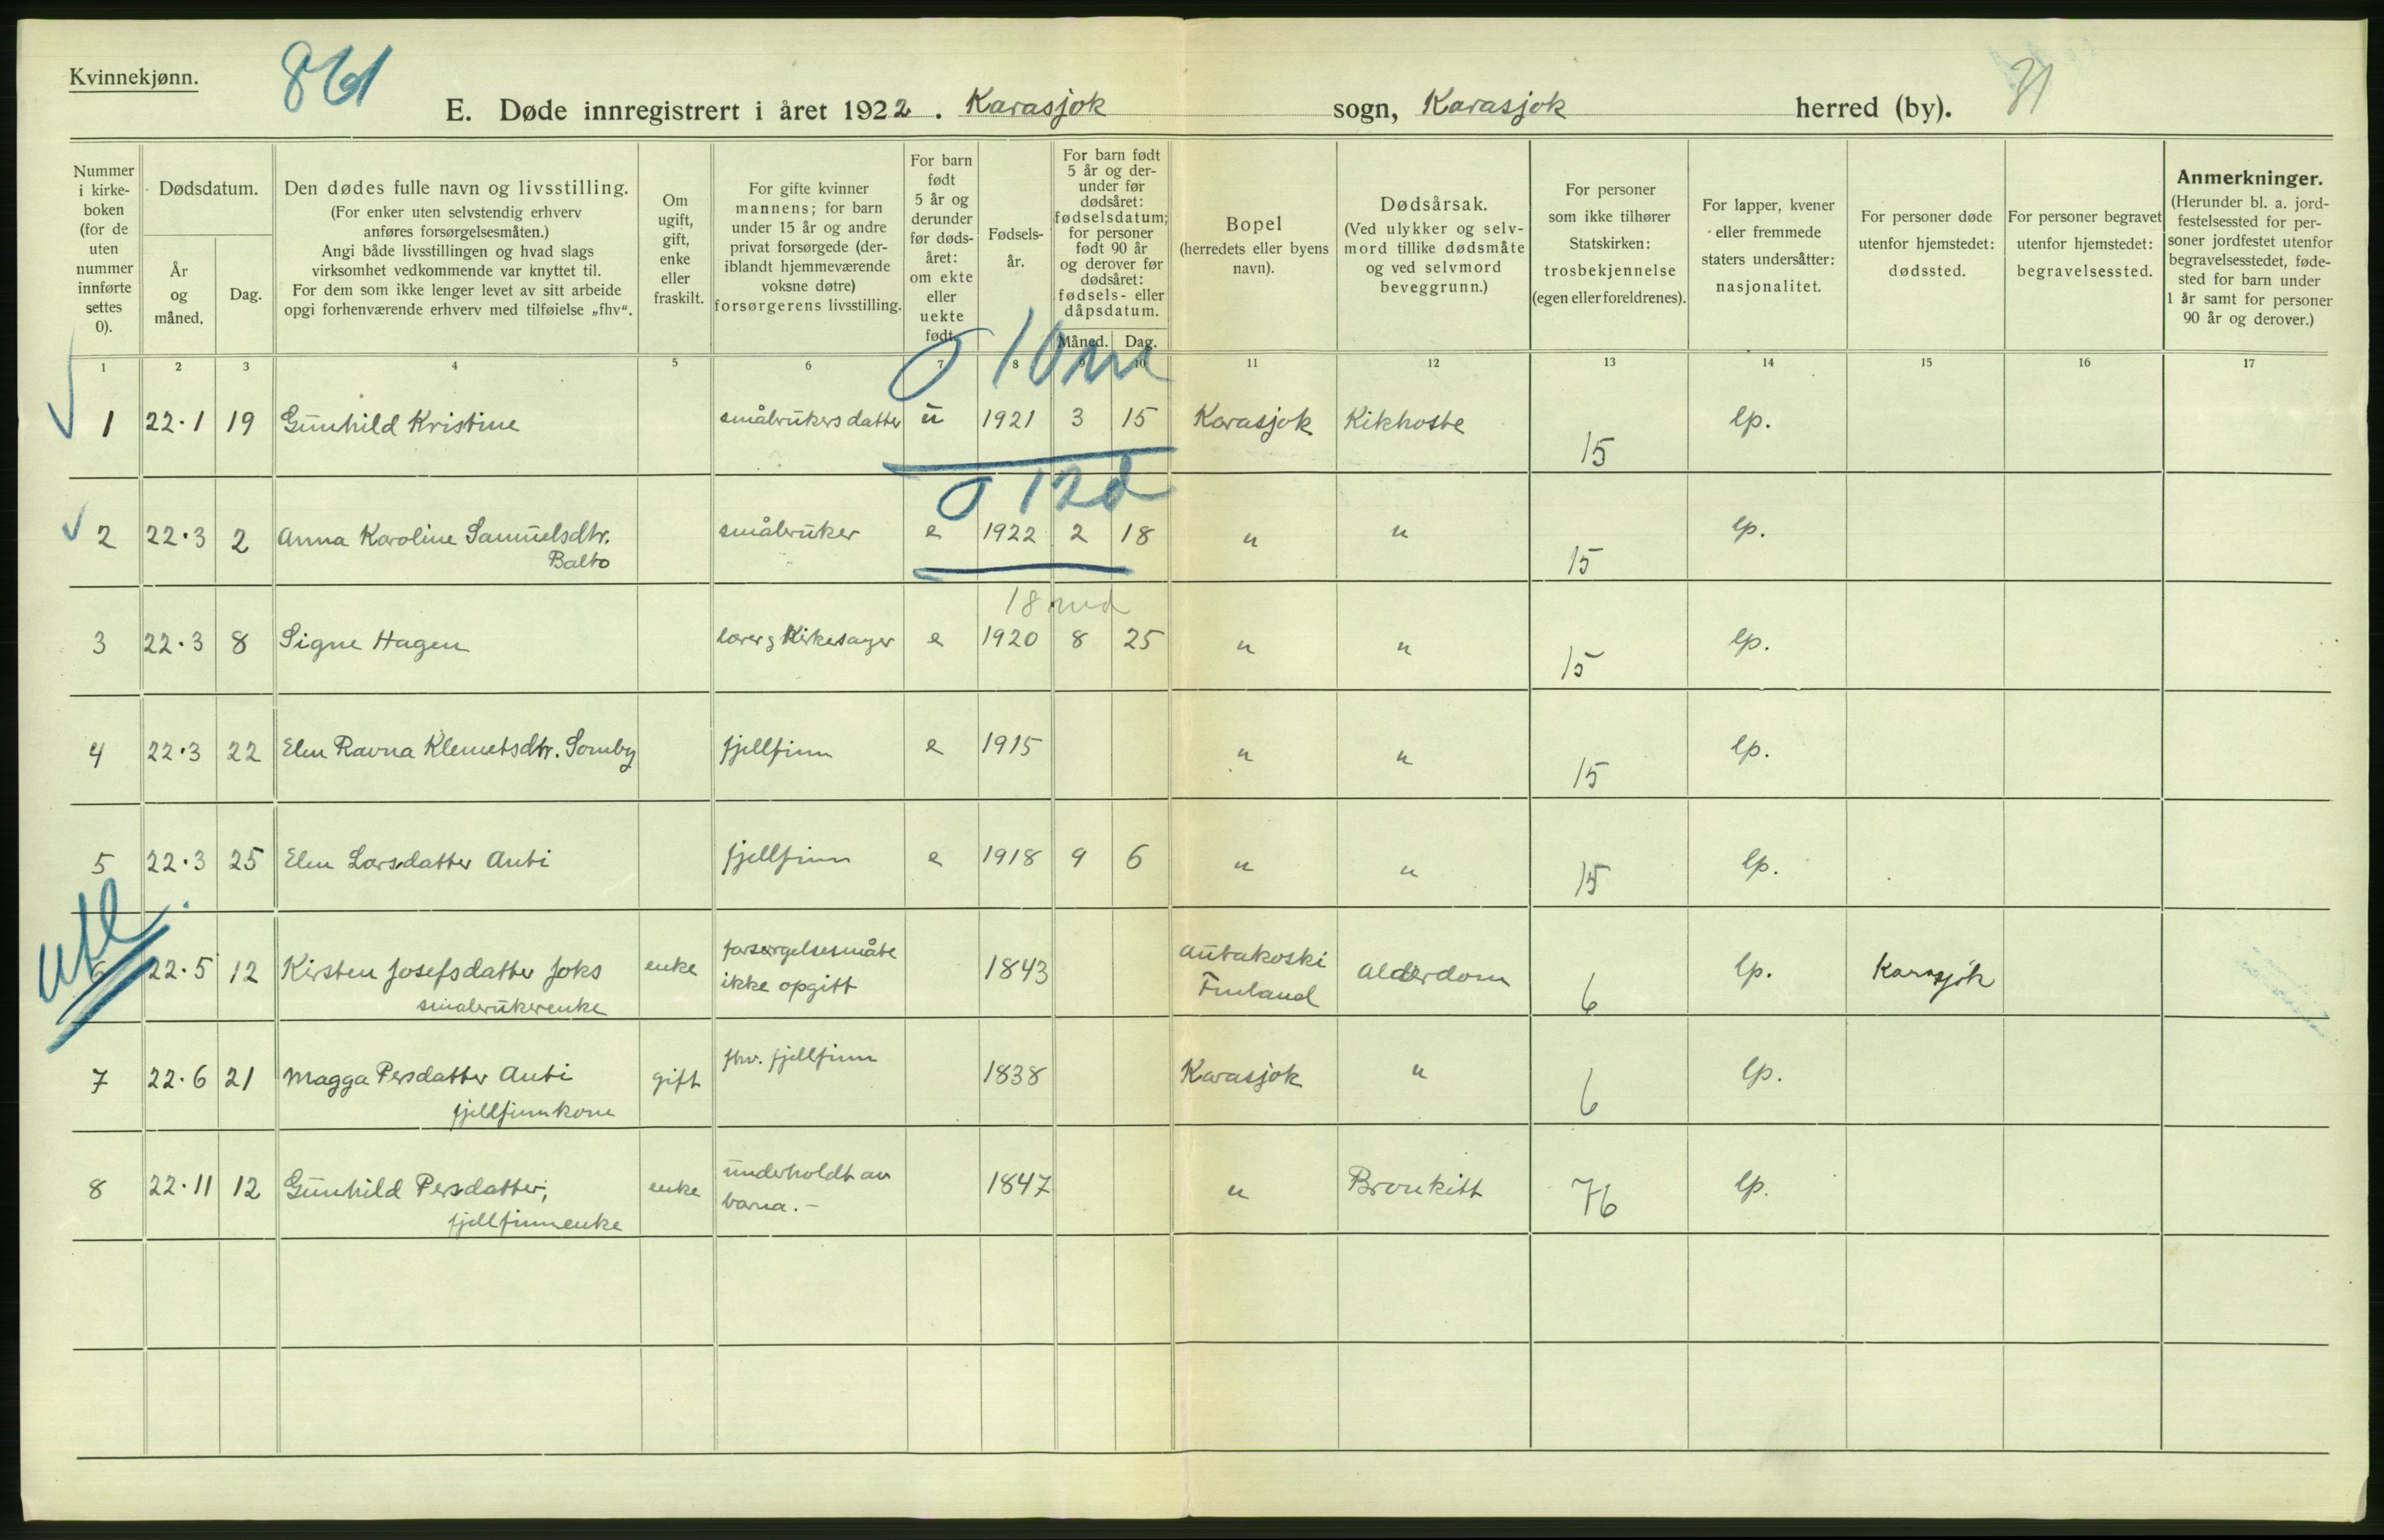 Kvinnekjønn.
861
E. Døde innregistrert i året 1922. Karasjok sogn, Karasjok herred (by).
Nummer i kirke-boken (for de uten nummer innførte settes 0).
Dødsdatum.
År og måned.
Dag.
Den dødes fulle navn og livsstilling.
(For enker uten selvstendig erhverv anføres forsørgelsesmåten.)
Angi både livsstillingen og hvad slags virksomhet vedkommende var knyttet til.
For dem som ikke lenger levet av sitt arbeide opgi forhenværende erhverv med tilføielse „fhv“.
Om ugift, gift, enke eller fraskilt.
For gifte kvinner mannens; for barn under 15 år og andre privat forsørgede (der-iblandt hjemmeværende voksne døtre) forsørgerens livsstilling.
For barn født 5 år og derunder før døds-året: om ekte eller uekte født.
Fødsels-år.
For barn født 5 år og der-under før dødsåret: fødselsdatum; for personer født 90 år og derover før dødsåret: fødsels- eller dåpsdatum.
Måned.
Dag.
Bopel (herredets eller byens navn).
Dødsårsak.
(Ved ulykker og selv-mord tillike dødsmåte og ved selvmord beveggrunn.)
For personer som ikke tilhører Statskirken: trosbekjennelse (egen eller foreldrenes).
For lapper, kvener eller fremmede staters undersåtter: nasjonalitet.
For personer døde utenfor hjemstedet: dødssted.
For personer begravet utenfor hjemstedet: begravelsessted.
Anmerkninger.
(Herunder bl. a. jord-festelsessted for per-soner jordfestet utenfor begravelsesstedet, føde-sted for barn under 1 år samt for personer 90 år og derover.)
1 2 3 4 5 6 7 8 9 10 11 12 13 14 15 16 17
0 10 m
1 22.1 19 Gunhild Kristine småbrukers datter u 1921 3 15 Karasjok Kikhoste 15 lp.
0 12 d
2 22.3 2 Anna Karoline Samuelsdtr. Balto småbruker e 1922 2 18 " " 15 lp.
18 md
3 22.3 8 Signe Hagen lærer g Kirkesanger e 1920 8 25 " " 15 lp.
4 22.3 22 Elen Ravna Klemetsdtr. Somby fjellfinn e 1915 " " 15 lp.
5 22.3 25 Elen Larsdatter Anti fjellfinn e 1918 9 6 " " 15 lp.
utl
6 22.5 12 Kirsten Josefsdatter Joks småbrukerenke enke forsørgelsesmåte ikke opgitt 1843 Autakoski Finland Alderdom 6 lp. Karasjok
7 22.6 21 Magga Persdatter Anti fjellfinnkone gift fhv. fjellfinn 1838 Karasjok " 6 lp.
8 22.11 12 Gunhild Persdatter, fjellfinnenke enke underholdt av barna.- 1847 " Bronkitt 76 lp.